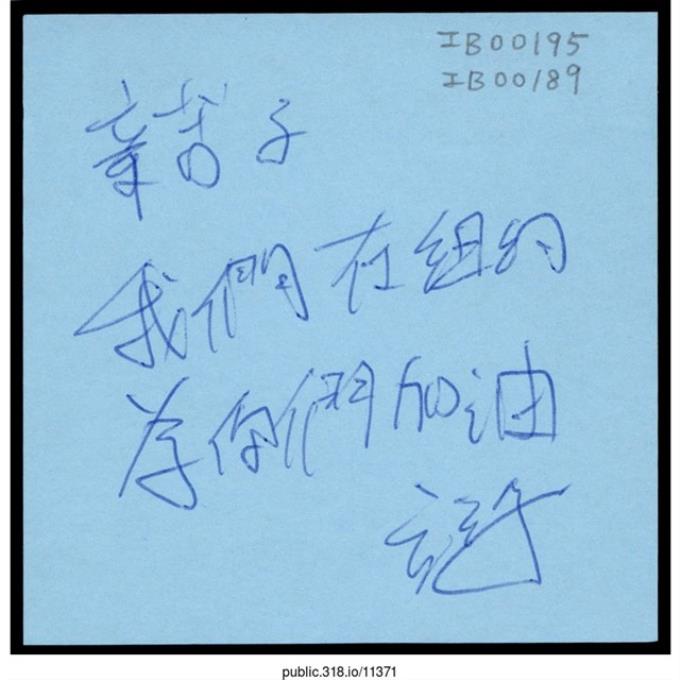 IB00195
IB00189
辛苦了
我們在纽約
為你們加油
public.318.io/11371